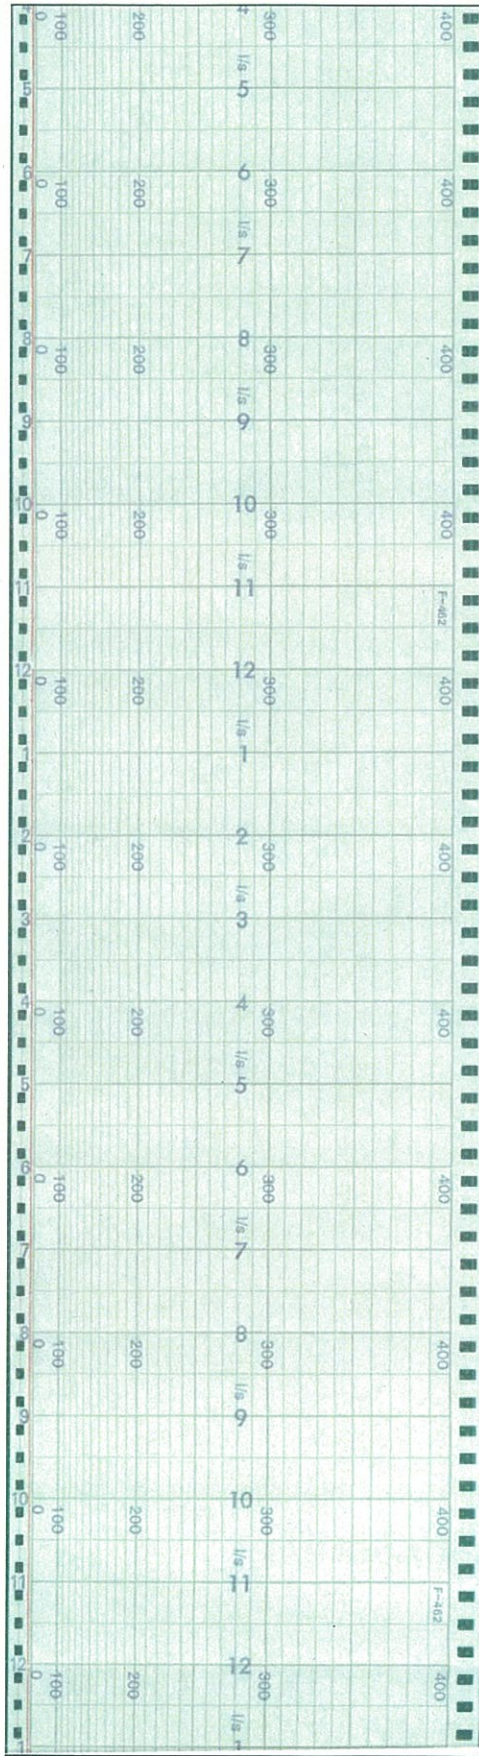 4 4
0 100 200 300 400
l/s
5 5
6 6
0 100 200 300 400
l/s
7 7
8 8
0 100 200 300 400
l/s
9 9
10 10
0 100 200 300 400
l/s
11 11
F-462
12 12
0 100 200 300 400
l/s
1 1
2 2
0 100 200 300 400
l/s
3 3
4 4
0 100 200 300 400
l/s
5 5
6 6
0 100 200 300 400
l/s
7 7
8 8
0 100 200 300 400
l/s
9 9
10 10
0 100 200 300 400
l/s
11 11
F-462
12 12
0 100 200 300 400
l/s
1 1